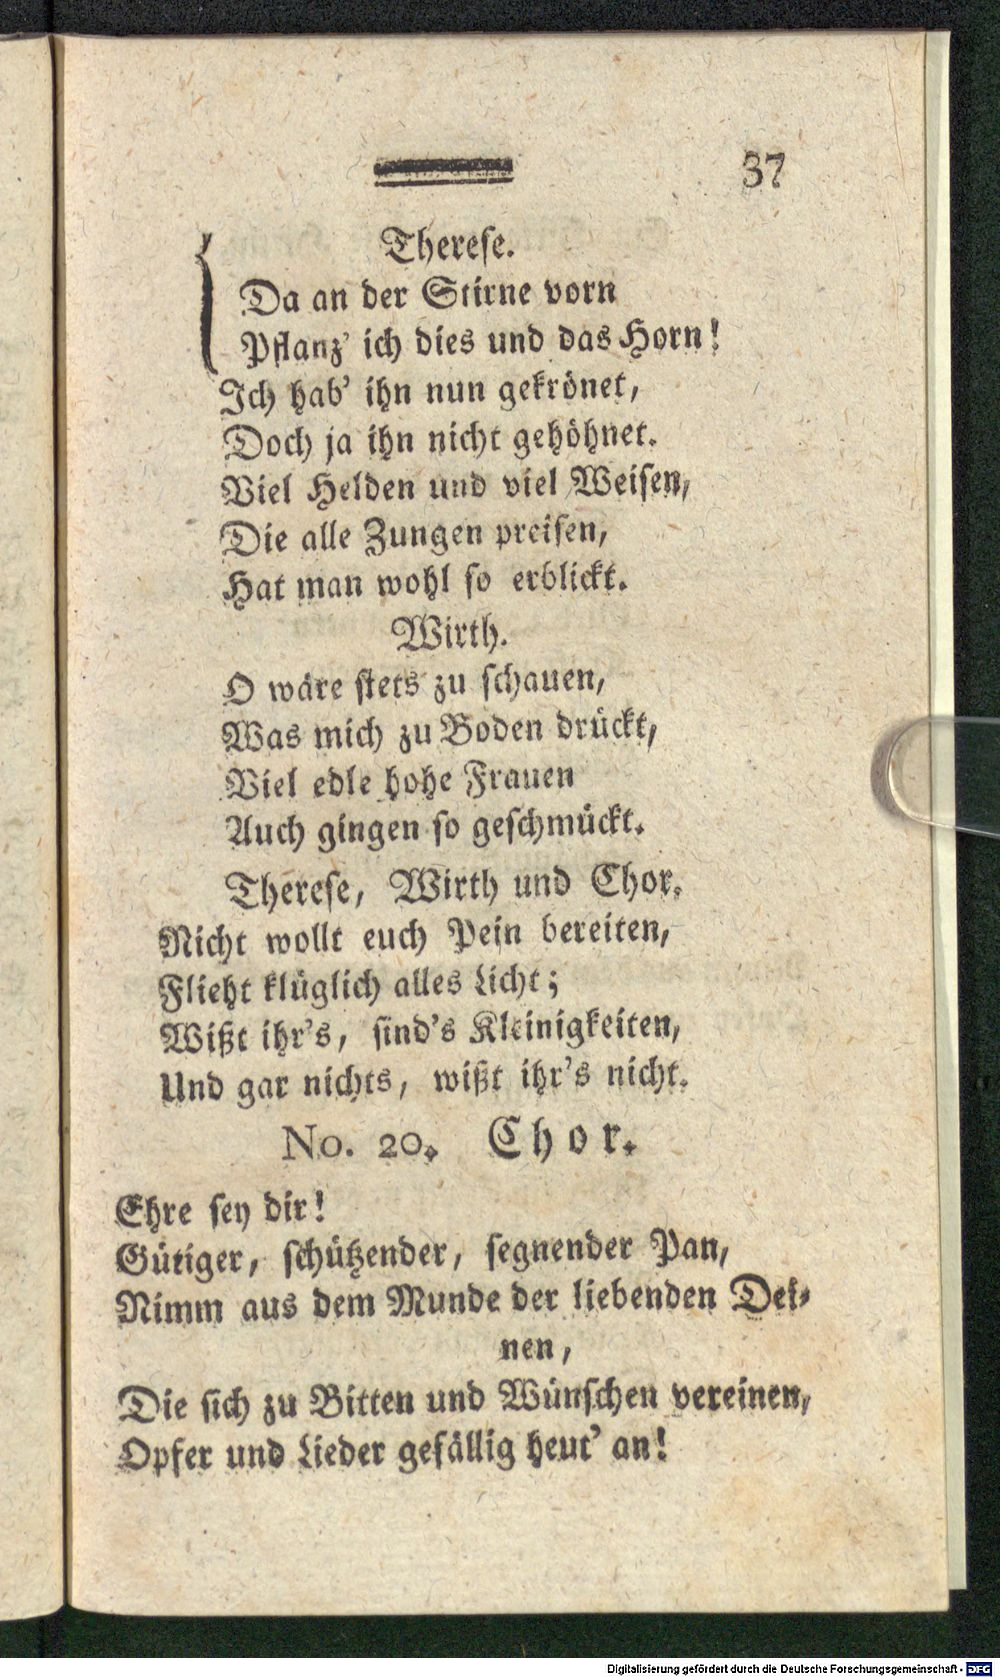 37
Therese.
Da an der Stirne vorn
Pflanz' ich dies und das Horn!
Ich hab' ihn nun gekrönet,
Doch ja ihn nicht gehöhnet.
Viel Helden und viel Weisen,
Die alle Zungen preisen,
Hat man wohl so erblickt.
Wirth.
O wäre stets zu schauen,
Was mich zu Boden drückt,
Viel edle hohe Frauen
Auch gingen so geschmückt.
Therese, Wirth und Chor.
Nicht wollt euch Pein bereiten,
Flieht klüglich alles Licht;
Wißt ihr's, sind's Kleinigkeiten,
Und gar nichts, wißt ihr's nicht.
No. 20. Chor.
Ehre sey dir!
Gütiger, schützender, segnender Pan,
Nimm aus dem Munde der liebenden Dei-
nen,
Die sich zu Bitten und Wünschen vereinen,
Opfer und Lieder gefällig heut' an!
Digitalisierung gefördert durch die Deutsche Forschungsgemeinschaft - DFG